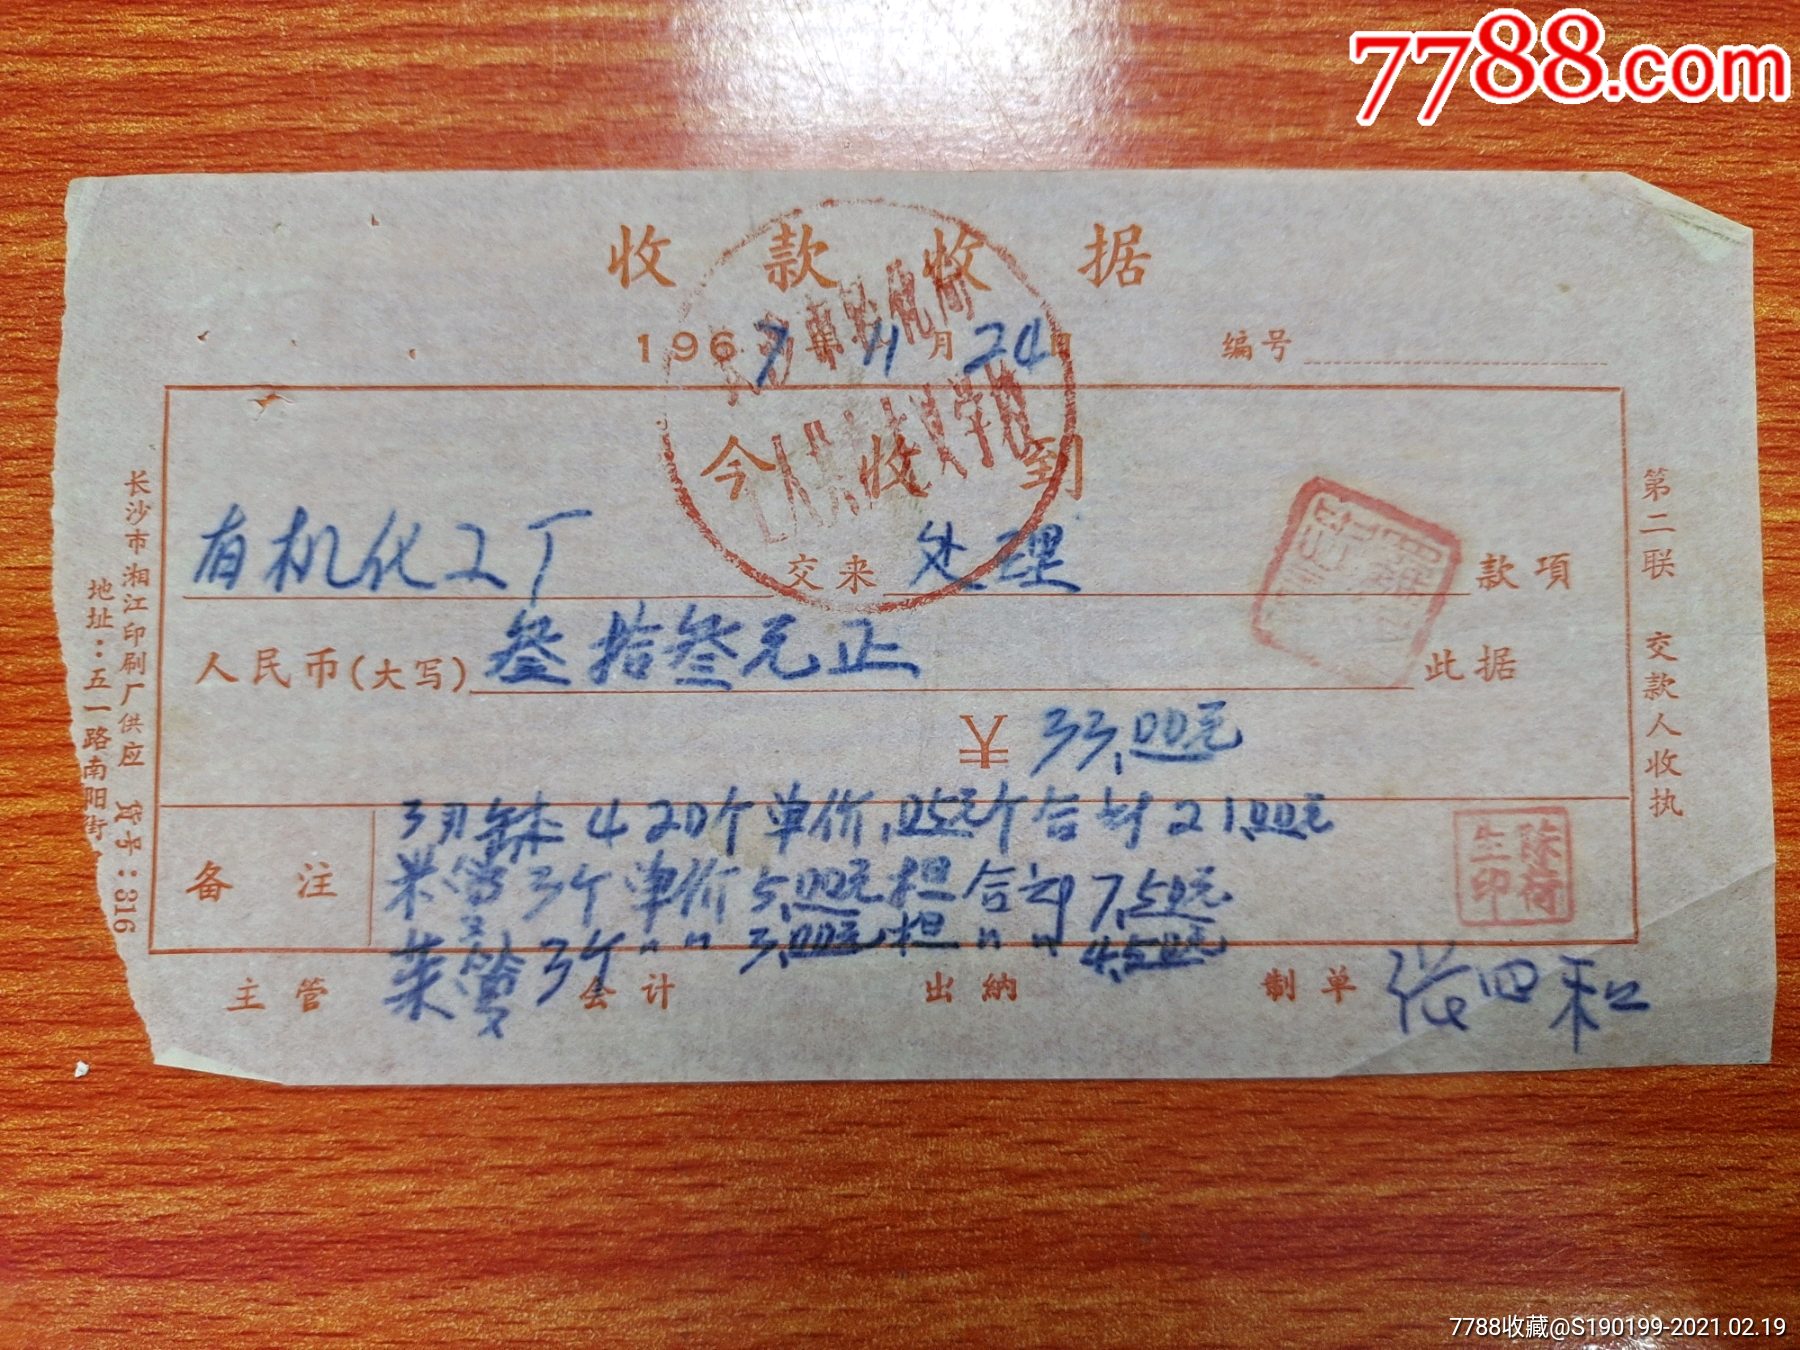 7788.com
收款收据
1967年11月24日 编号
今收到
有机化工厂 交来 处理 款項
人民币(大写) 叁拾叁元正 此据
¥ 33.00元
备注
420个单价.05元个合计21.00元
3个单价5.00元担合计7.50元
3个〃〃3.00元担〃〃4.50元
陈荷生印
主管 会计 出納 制单 张四和
第二联 交款人收执
长沙市湘江印刷厂供应 货号:316
地址:五一路南阳街
7788收藏@S190199-2021.02.19